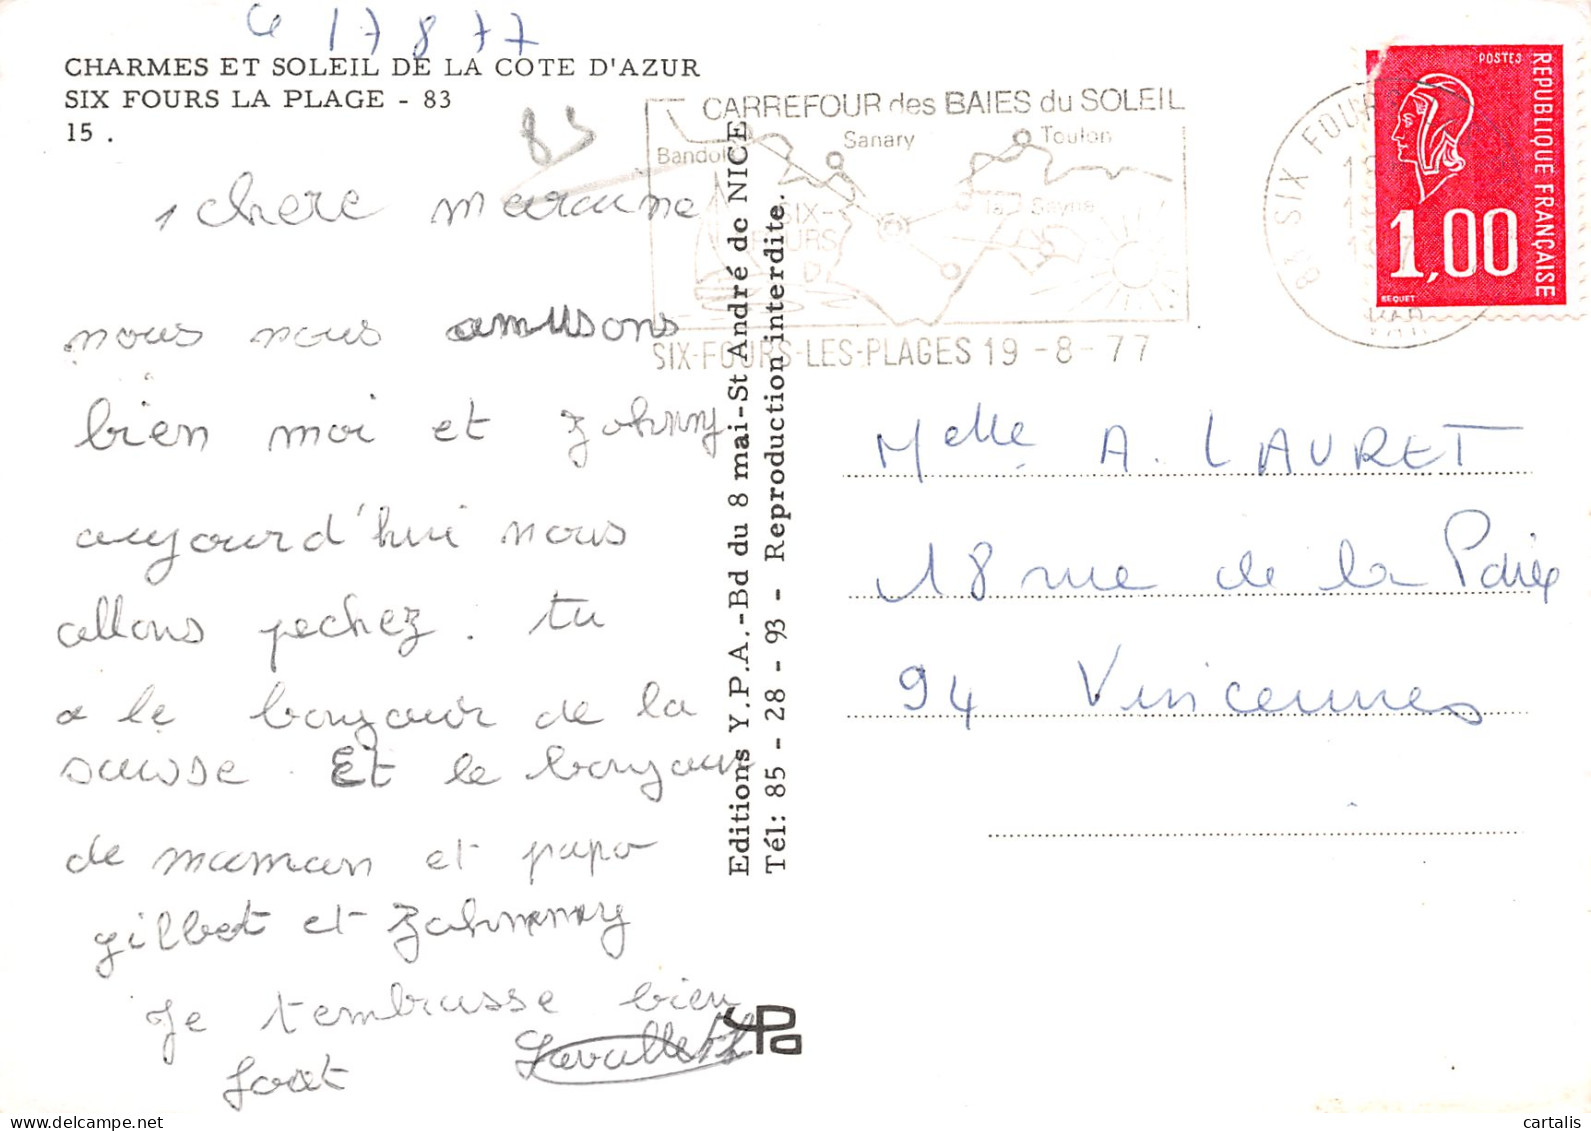 Le 17 8 77
CHARMES ET SOLEIL DE LA COTE D'AZUR
SIX FOURS LA PLAGE - 83
15 .
83
chere marraine
nous nous amusons
bien moi et Johnny
aujourd'hui nous
allons pechez. tu
a le bonjour de la
suisse. Et le bonjour
de maman et papa
gilbet et Johnnny
Je t'embrasse bien
fort
Editions Y.P.A.-Bd du 8 mai-St André de NICE
Tél: 85 - 28 - 93 - Reproduction interdite.
YPA
CARREFOUR des BAIES du SOLEIL
Bandol
Sanary
Toulon
la Seyne
SIX-
FOURS
SIX-FOURS-LES-PLAGES 19 -8- 77
83 SIX FOURS
VAR
POSTES
REPUBLIQUE FRANÇAISE
1,00
BEQUET
Melle A. LAURET
18 rue de la Paix
94 Vincennes
cartalis
delcampe.net